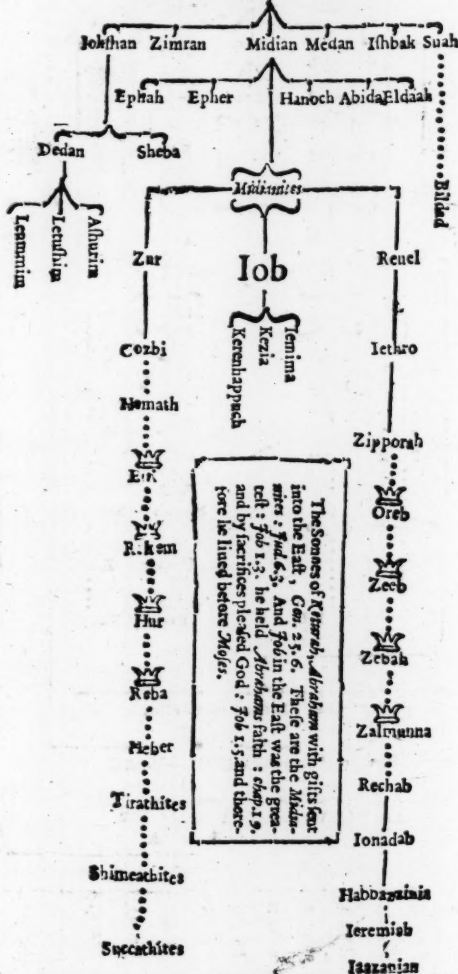 Iokſhan Zimran Midian Medan Iſhbak Suah
Ephah Epher Hanoch Abida Eldaah
Dedan Sheba
Bildad
Midianites
Leummim
Letuſhim
Aſhurim
Zur
Iob
Reuel
Iemima
Kezia
Kerenhappuch
Cozbi
Iethro
Hemath
Zipporah
Evi
Oreb
Rikem
Zeeb
Hur
Zebah
Reba
Zalmunna
Heber
Rechab
Tirathites
Ionadab
Shimeathites
Habbazzinia
Ieremiah
Succathites
Iaazanian
The Sonnes of Keturah, Abraham with gifts ſent
into the Eaſt, Gen. 25.6. Theſe are the Midia-
nites: Jud.6.3. And Job in the Eaſt was the grea-
teſt: Job 1.3. he held Abrahams faith: chap.19.
and by ſacrifices pleaſed God: Job 1.5. and there-
fore he liued before Moſes.